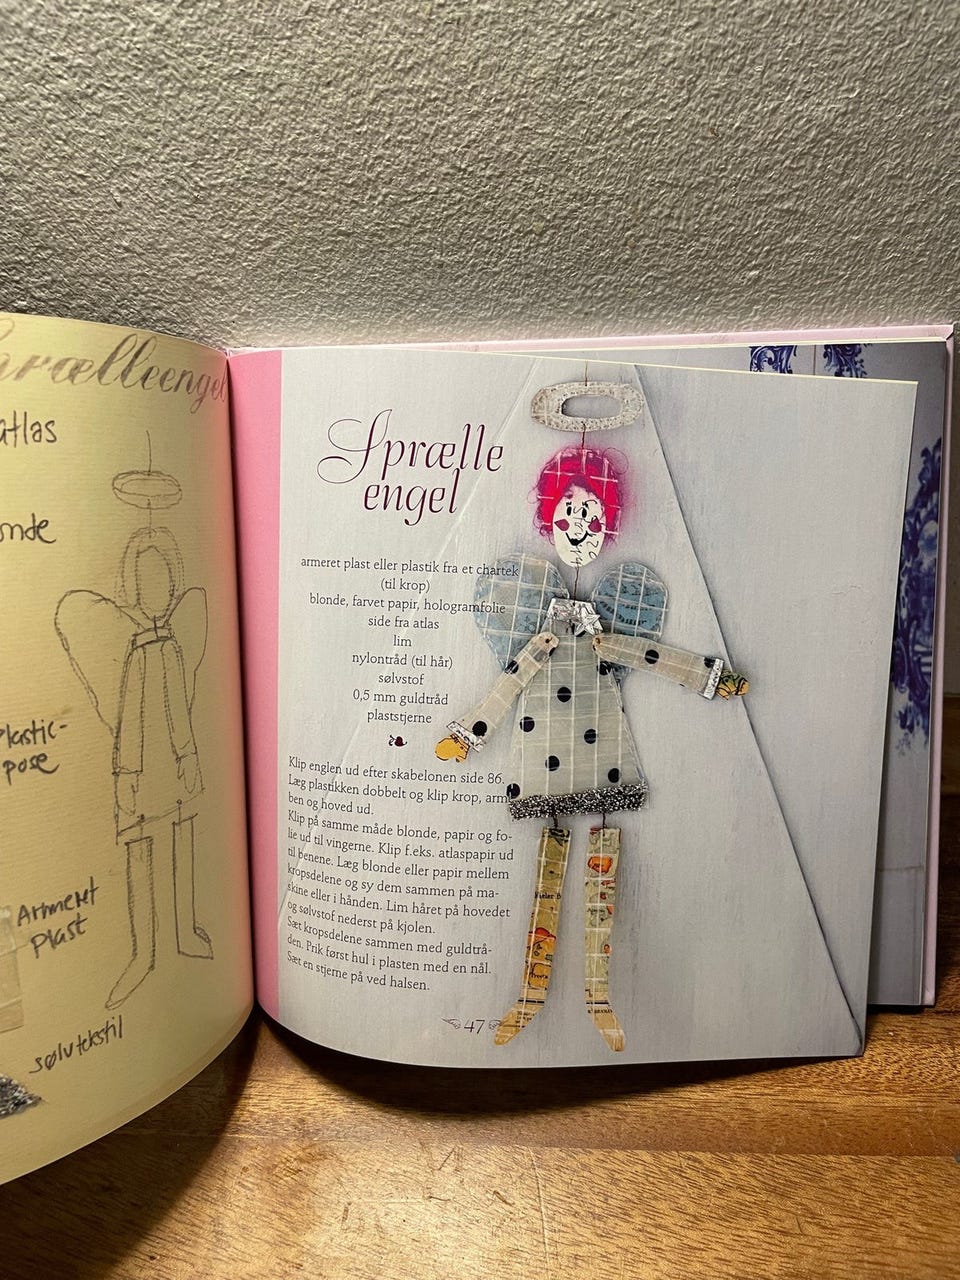 atlas
Plastic-
pose
Armeret
plast
sølvtekstil
Sprælle
engel
armeret plast eller plastik fra et chartek
(til krop)
blonde, farvet papir, hologramfolie
side fra atlas
lim
nylontråd (til hår)
sølvstof
0,5 mm guldtråd
plaststjerne
Klip englen ud efter skabelonen side 86.
Læg plastikken dobbelt og klip krop, arm
ben og hoved ud.
Klip på samme måde blonde, papir og fo-
lie ud til vingerne. Klip f.eks. atlaspapir ud
til benene. Læg blonde eller papir mellem
kropsdelene og sy dem sammen på ma-
skine eller i hånden. Lim håret på hovedet
og sølvstof nederst på kjolen.
Sæt kropsdelene sammen med guldtrå-
den. Prik først hul i plasten med en nål.
Sæt en stjerne på ved halsen.
47